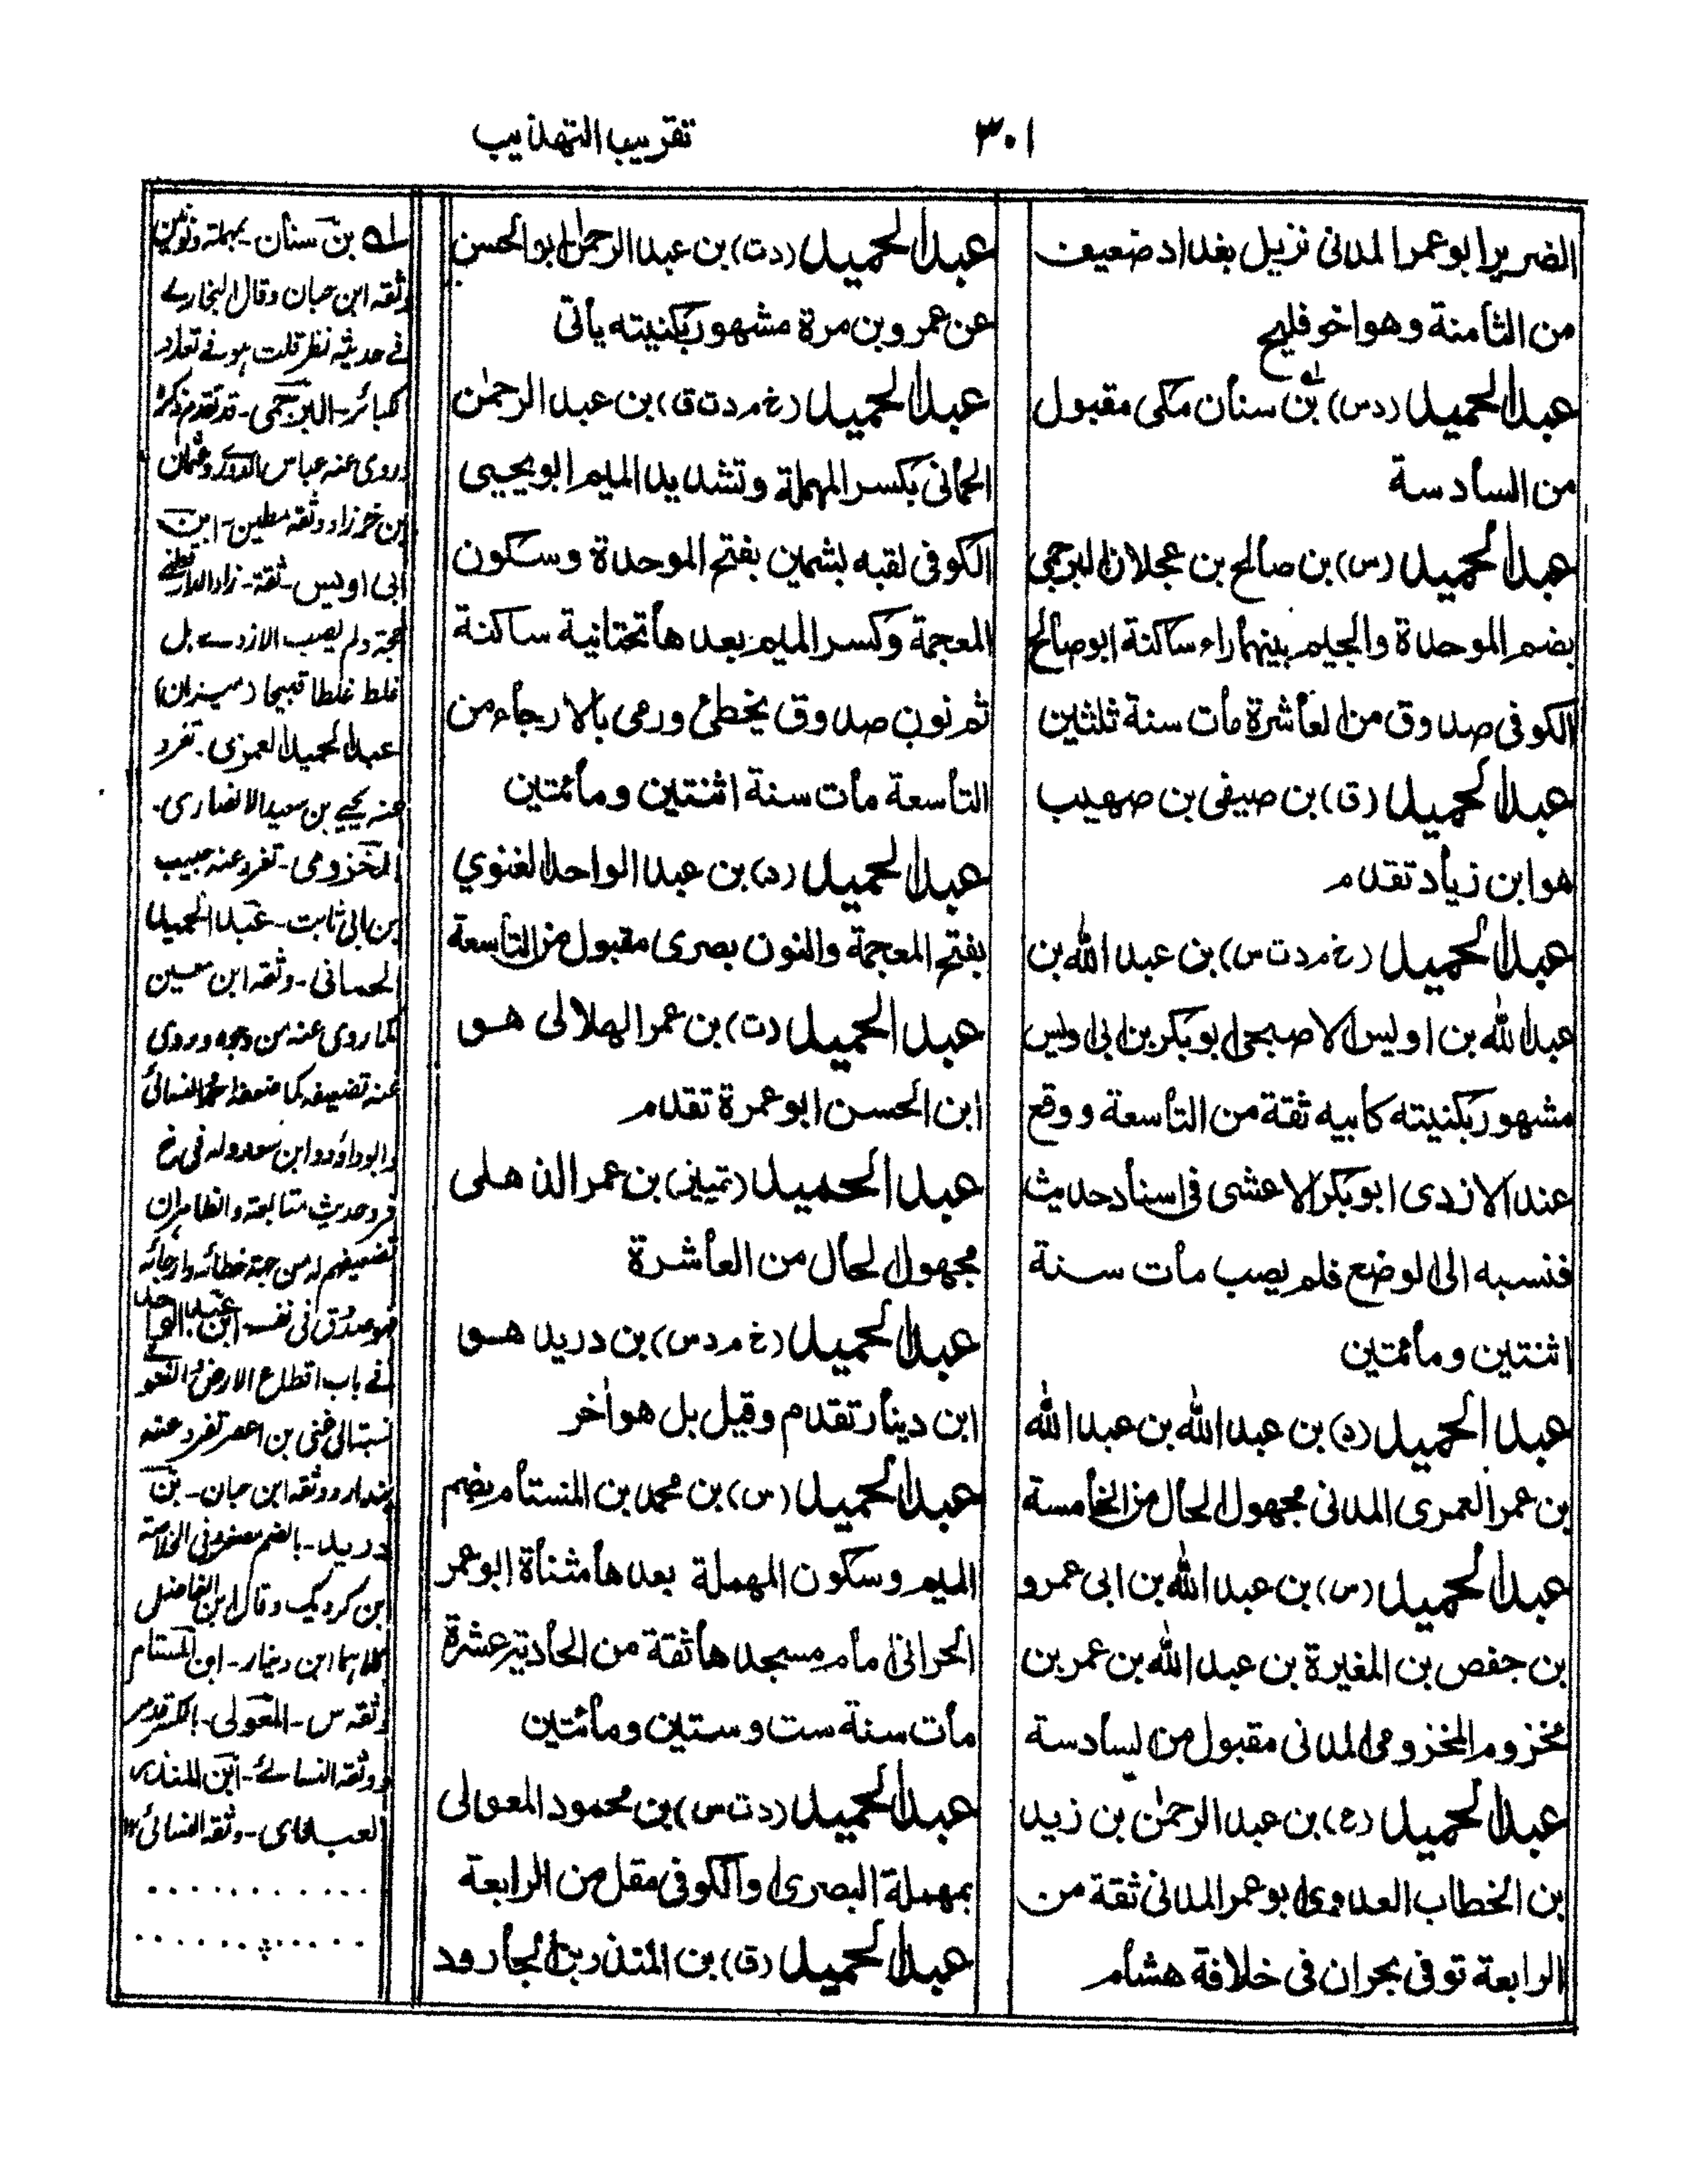 ٣٠١
تقريب التهذيب
الضرير ابو عمر المدنى نزيل بغداد ضعيف
من الثامنة وهو اخو فليح
عبد الحميد (دس) بن سنان مكى مقبول
من السادسة
عبد الحميد (س) بن صالح بن عجلان البرجمى
بضم الموحدة والجيم بينهما راء ساكنة ابو صالح
الكوفى صدوق من العاشرة مات سنة ثلثين
عبد الحميد (ق) بن صيفى بن صهيب
هو ابن زياد تقدم
عبد الحميد (خ م د ت س) بن عبد الله بن
عبد الله بن اويس الاصبحى ابو بكر بن ابى اويس
مشهور بكنيته كأبيه ثقة من التاسعة ووقع
عند الازدى ابو بكر الاعشى فى اسناد حديث
فنسبه الى الوضع فلم يصب مات سنة
اثنتين ومائتين
عبد الحميد (د) بن عبد الله بن عبد الله
بن عمر العمرى المدنى مجهول الحال من الخامسة
عبد الحميد (س) بن عبد الله بن ابى عمرو
بن حفص بن المغيرة بن عبد الله بن عمر بن
مخزوم المخزومى المدنى مقبول من السادسة
عبد الحميد (ع) بن عبد الرحمٰن بن زيد
بن الخطاب العدوى ابو عمر المدنى ثقة من
الرابعة توفى بحران فى خلافة هشام
عبد الحميد (دت) بن عبد الرحمٰن ابو الحسن
عن عمرو بن مرة مشهور بكنيته يأتى
عبد الحميد (خ م د ت ق) بن عبد الرحمٰن
الحمانى بكسر المهملة وتشديد الميم ابو يحيى
الكوفى لقبه بشمين بفتح الموحدة وسكون
المعجمة وكسر الميم بعدها تحتانية ساكنة
ثم نون صدوق يخطئ ورمى بالارجاء من
التاسعة مات سنة اثنتين ومائتين
عبد الحميد (د) بن عبد الواحد الغنوي
بفتح المعجمة والنون بصرى مقبول من التاسعة
عبد الحميد (ت) بن عمر الهلالى هو
ابن الحسن ابو عمرة تقدم
عبد الحميد (تمييز) بن عمر الذهلى
مجهول الحال من العاشرة
عبد الحميد (خ م د س) بن دريد هو
ابن دينار تقدم وقيل بل هو اٰخر
عبد الحميد (س) بن محمد بن المستام بضم
الميم وسكون المهملة بعدها مثناة ابو عمر
الحرانى امام مسجدها ثقة من الحادية عشرة
مات سنة ست وستين ومائتين
عبد الحميد (د ت س) بن محمود المعولى
بمهملة البصرى او الكوفى مقل من الرابعة
عبد الحميد (ق) بن المنذر بن الجارود
بن سنان - بمهملة ونونين
وثقه ابن حبان وقال البخارے
فے حديثه نظر قلت ہو فے تعداد
كبائر - البرجمى - قد تقدم ذكره
وروى عنه عباس الدورے وعثمان
بن خرزاد وثقه مطين - ابن
ابى اويس - ثقة - زاد الدارقطنے
حجة ولم يصب الازدے بل
غلط غلطا قبيحا (ميزان)
عبد الحميد العمرى - تفرد
عنه يحيے بن سعيد الانصارى -
المخزومى - تفرد عنه حبيب
بن ابى ثابت - عبد الحميد
الحمانى - وثقه ابن معين
كما روى عنه من وجوه وروى
عنه تضعيفه كما ضعفه النسائى
وابو داؤد وابن سعد وله فى خ
فرد حديث متابعة والظاہر ان
تضعيفهم له من جهة خطائه وارجائه
فهو صدوق فى نفسه - ابن عبد الواحد
فے باب اقطاع الارض الغنوے
نسبة الى غنى بن اعصر تفرد عنه
بندار ووثقه ابن حبان - بن
دريد - بالضم مصغر وفى الخلاصة
ابن كرديد وقال ابن الفاضل
كلاہما ابن دينار - ابن المستام
وثقه س - المعولى - بالكسر
ووثقه النسائے - ابن المنذر
العبدى - وثقه النسائى ١٢